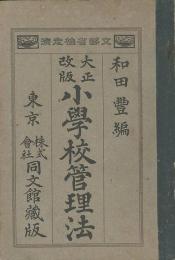 文部省檢定濟
和田豐編
大正改版
小學校管理法
東京 株式會社 同文館藏版